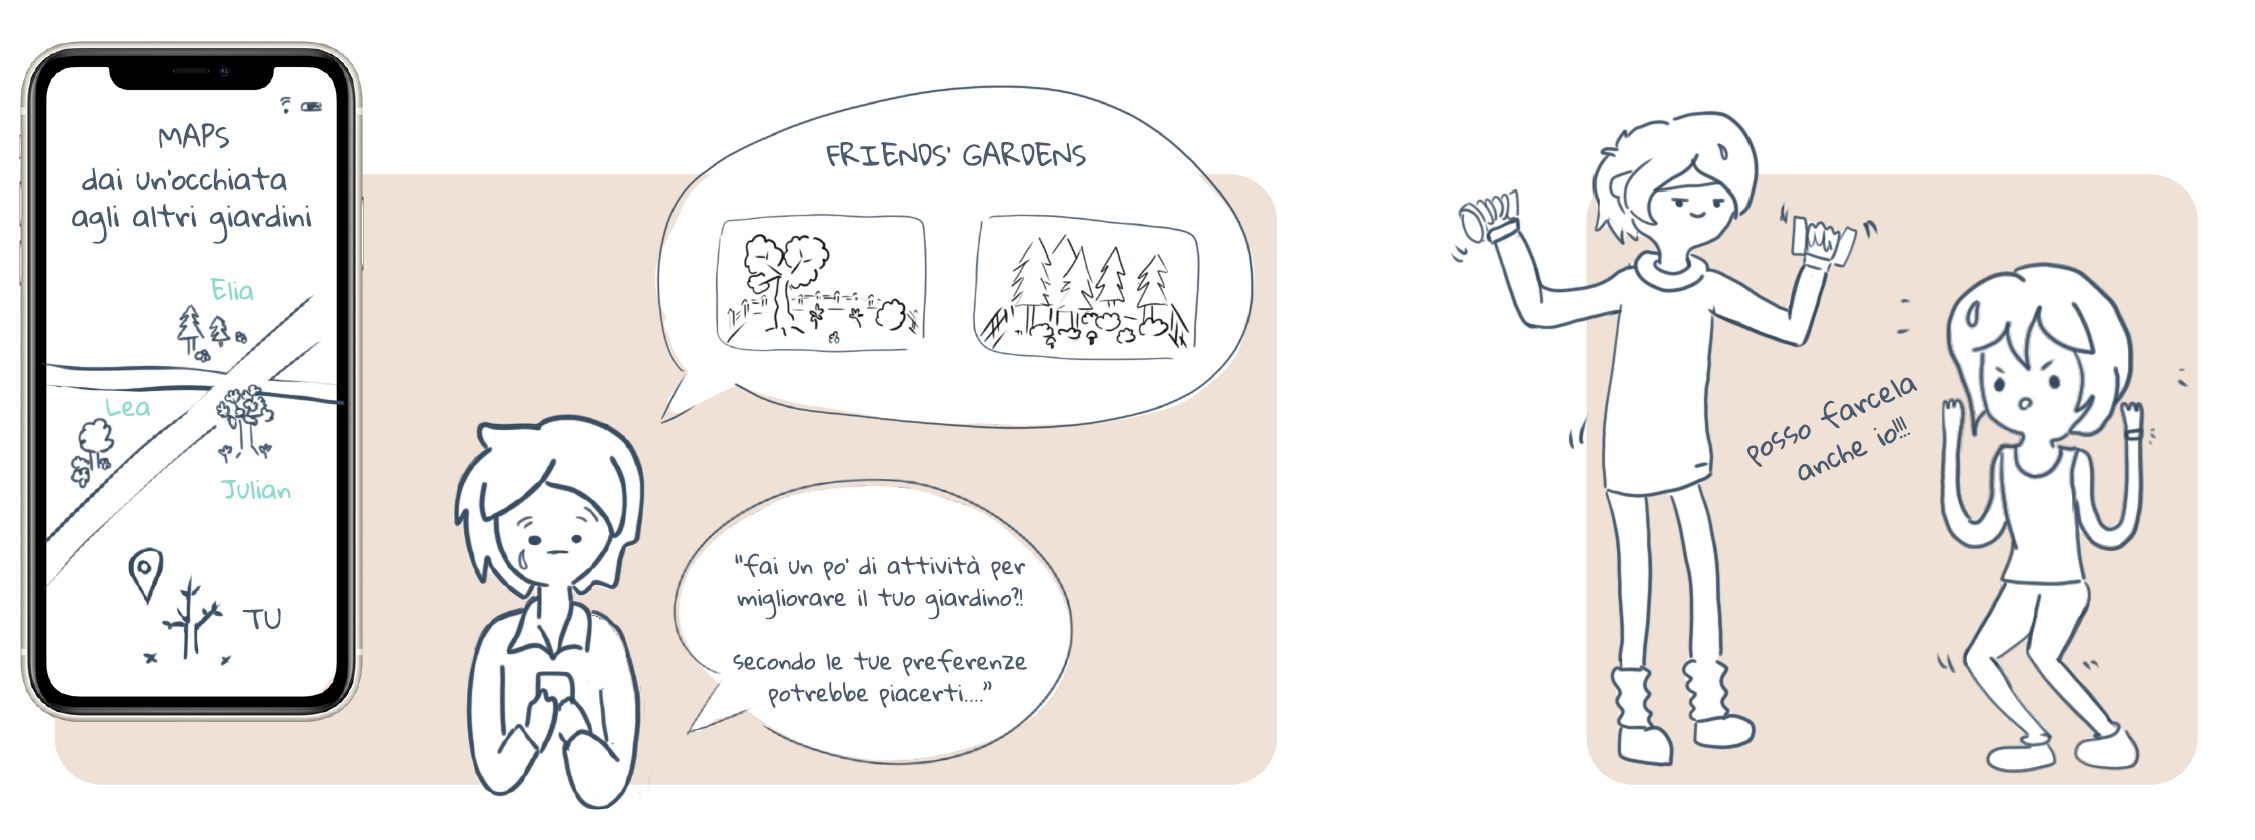 MAPS
dai un'occhiata
agli altri giardini
Elia
Lea
Julian
TU
FRIENDS' GARDENS
"fai un po' di attività per
migliorare il tuo giardino?!
secondo le tue preferenze
potrebbe piacerti...."
posso farcela
anche io!!!